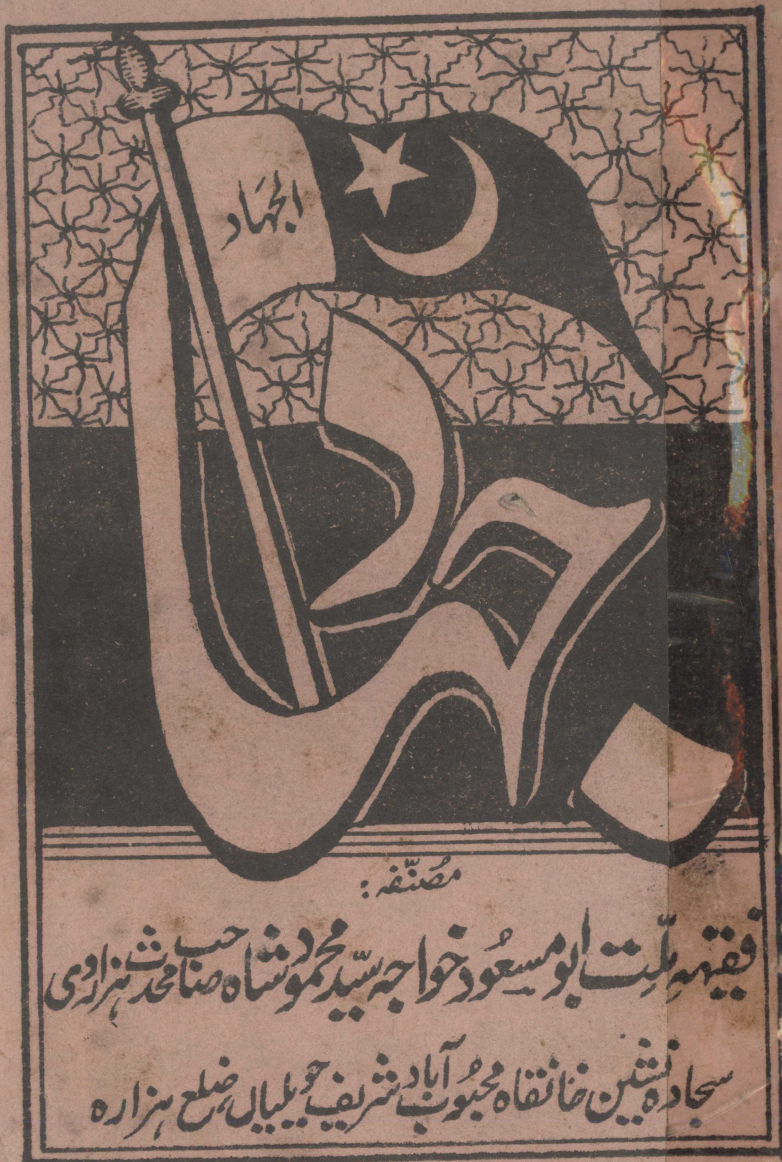 الجہاد
جہاد
مُصنّفہ:
فقیہہِ ملّت ابو مسعُود خواجہ سیّد محمود شاہ صاحب محدث ہزاروی
سجادہ نشین خانقاہ محبُوب آباد شریف حویلیاں ضلع ہزارہ